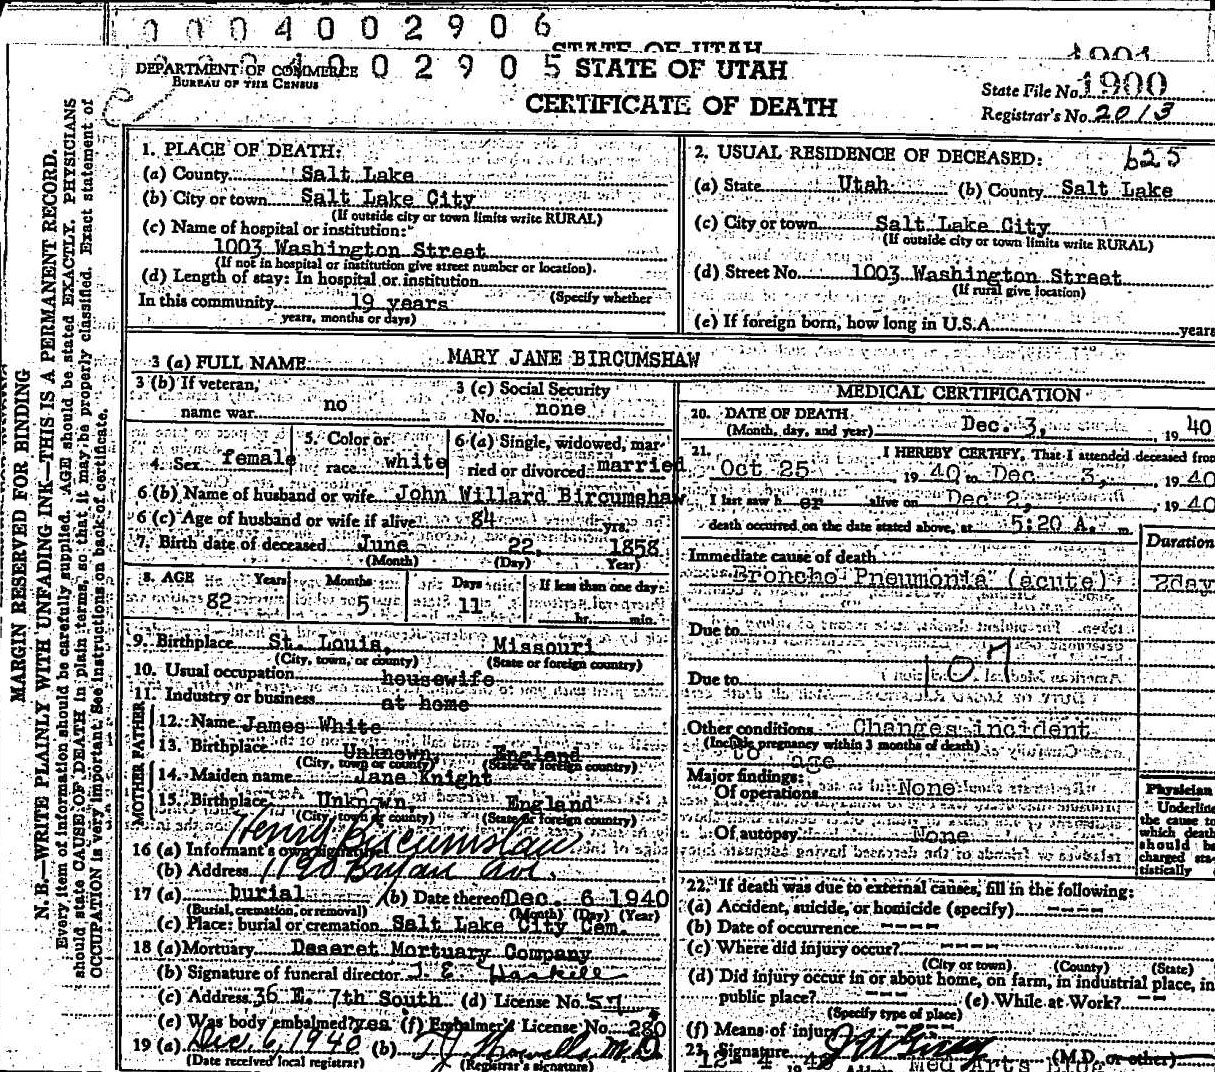 0004002906
STATE OF UTAH 1901
DEPARTMENT OF COMMERCE 0004002905 STATE OF UTAH
BUREAU OF THE CENSUS
State File No. 1900
CERTIFICATE OF DEATH
Registrar's No. 2013
MARGIN RESERVED FOR BINDING
N. B.—WRITE PLAINLY WITH UNFADING INK—THIS IS A PERMANENT RECORD.
Every item of information should be carefully supplied. AGE should be stated EXACTLY. PHYSICIANS
should state CAUSE OF DEATH in plain terms, so that it may be properly classified. Exact statement of
OCCUPATION is very important. See instructions on back of certificate.
1. PLACE OF DEATH:
(a) County Salt Lake
(b) City or town Salt Lake City
(If outside city or town limits write RURAL)
(c) Name of hospital or institution:
1003 Washington Street
(If not in hospital or institution give street number or location).
(d) Length of stay: In hospital or institution
(Specify whether
In this community 19 years
years, months or days)
2. USUAL RESIDENCE OF DECEASED: 625
(a) State Utah (b) County Salt Lake
(c) City or town Salt Lake City
(If outside city or town limits write RURAL)
(d) Street No. 1003 Washington Street
(If rural give location)
(e) If foreign born, how long in U.S.A. years
3 (a) FULL NAME MARY JANE BIRCUMSHAW
3 (b) If veteran, name war no
3 (c) Social Security No. none
4. Sex female
5. Color or race white
6 (a) Single, widowed, married or divorced married
6 (b) Name of husband or wife John Willard Bircumshaw
6 (c) Age of husband or wife if alive 84 yrs.
7. Birth date of deceased June 22, 1858
(Month) (Day) Year)
8. AGE Years Months Days If less than one day
82 5 11 hr. min.
9. Birthplace St. Louis, Missouri
(City, town, or county) (State or foreign country)
10. Usual occupation housewife
11. Industry or business at home
FATHER
12. Name James White
13. Birthplace Unknown, England
(City, town or county) (State or foreign country)
MOTHER
14. Maiden name Jane Knight
15. Birthplace Unknown, England
(City, town or county) (State or foreign country)
16 (a) Informant's own signature Henry Bircumshaw
(b) Address Bryan Ave.
17 (a) burial (b) Date thereof Dec. 6 1940
(Burial, cremation, or removal) (Month) (Day) (Year)
(c) Place: burial or cremation Salt Lake City Cem.
18 (a) Mortuary Deseret Mortuary Company
(b) Signature of funeral director J. E. Haskell
(c) Address 36 E. 7th South (d) License No. 57
(e) Was body embalmed? yes (f) Embalmer's License No. 280
19 (a) Dec. 6, 1940 (b) M.D.
(Date received local registrar) (Registrar's signature)
MEDICAL CERTIFICATION
20. DATE OF DEATH
(Month, day, and year) Dec. 3, 1940
21. I HEREBY CERTIFY, That I attended deceased from
Oct 25 1940 to Dec 3, 1940
I last saw h er alive on Dec 2, 1940
death occurred on the date stated above, at 5:20 A. m.
Duration
Immediate cause of death
Broncho Pneumonia (acute) 2day
Due to
107
Due to
Other conditions Changes incident
(Include pregnancy within 3 months of death)
to age
Major findings:
Of operations None
Of autopsy None
Physician
Underline
the cause to
which death
should be
charged sta-
tistically
22. If death was due to external causes, fill in the following:
(a) Accident, suicide, or homicide (specify) ----
(b) Date of occurrence ----
(c) Where did injury occur? ----
(City or town) (County) (State)
(d) Did injury occur in or about home, on farm, in industrial place, in
public place? --- (e) While at Work? --
(Specify type of place)
(f) Means of injury
23. Signature (M.D. or other)
12 - 4 1940 Address Med Arts Bldg